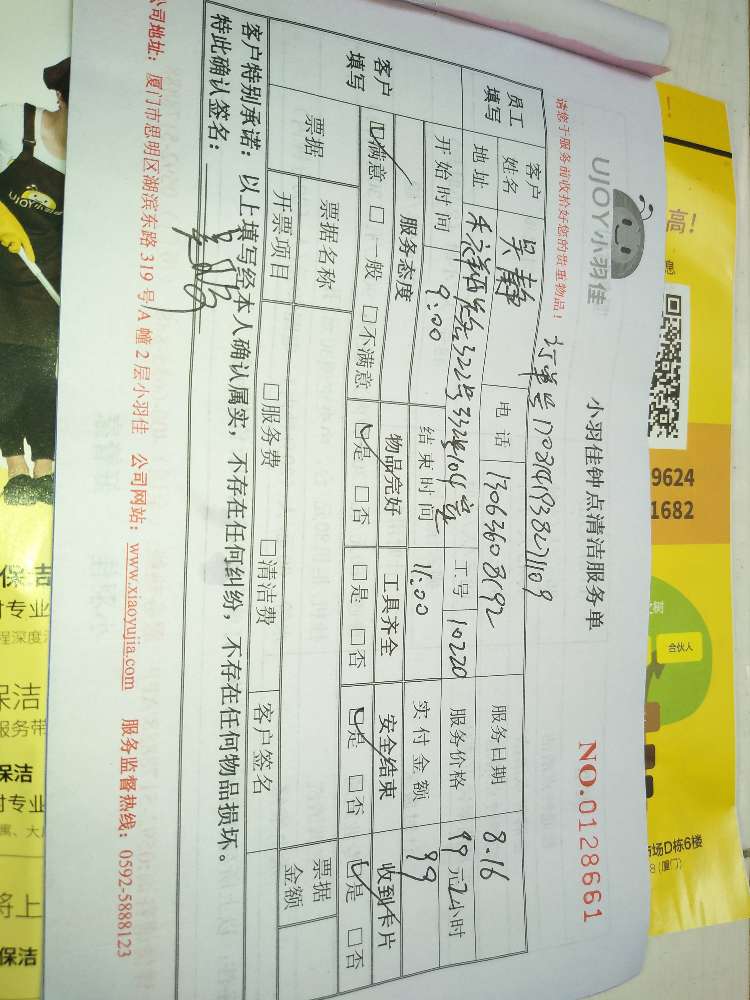 UJOY小羽佳
小羽佳钟点清洁服务单
NO.0128661
请您于服务前收拾好您的贵重物品!
员工填写
客户姓名 吴静 电话 13063608192 服务日期 8.16
地址 工号 10220 服务价格 99元2小时
开始时间 9:00 结束时间 11:00 实付金额 99
客户填写
服务态度 物品完好 工具齐全 安全结束 收到卡片
□满意 □一般 □不满意 □是 □否 □是 □否 □是 □否 □是 □否
票据
票据名称 客户签名 票据金额
开票项目 □服务费 □清洁费
客户特别承诺:以上填写经本人确认属实,不存在任何纠纷,不存在任何物品损坏。
特此确认签名:
公司地址:厦门市思明区湖滨东路319号A幢2层小羽佳 公司网站:www.xiaoyujia.com 服务监督热线:0592-5888123
高!
9624
1682
合伙人
市场D栋6楼
8(厦门)
UJOY小羽
保洁
时专业
程深度
保洁
服务带
保洁
时专业
将上
保洁